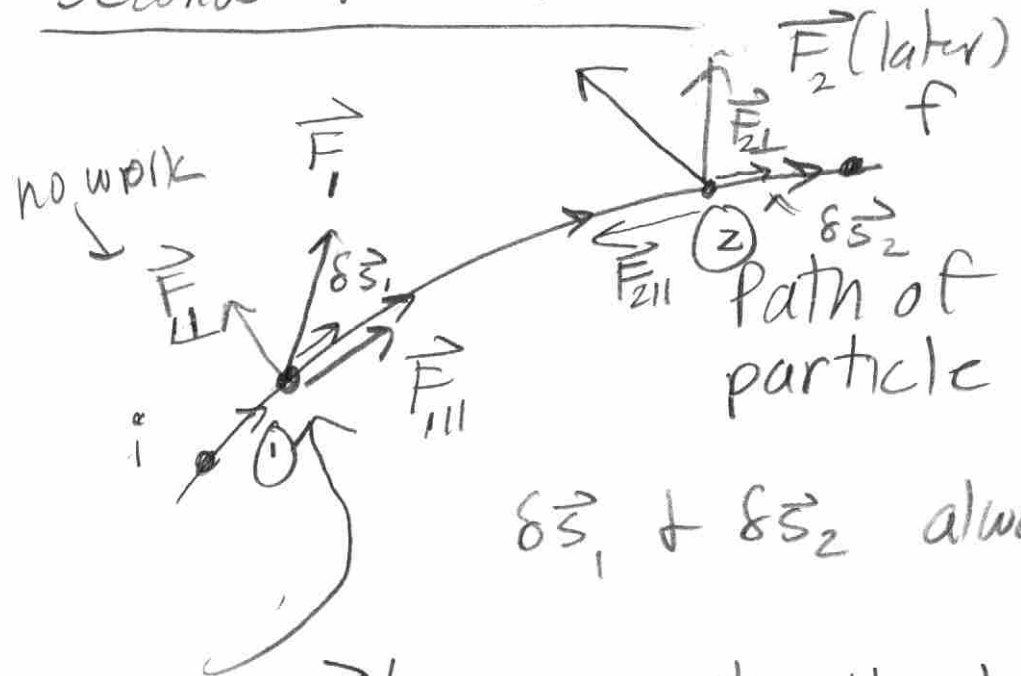 F⃗₂ (later)
f
F⃗₁
F⃗₂⊥
no work
F⃗₁⊥
δs⃗₁
②
δs⃗₂
F⃗₂||
Path of
particle
F⃗₁||
i
①
δs⃗₁ + δs⃗₂